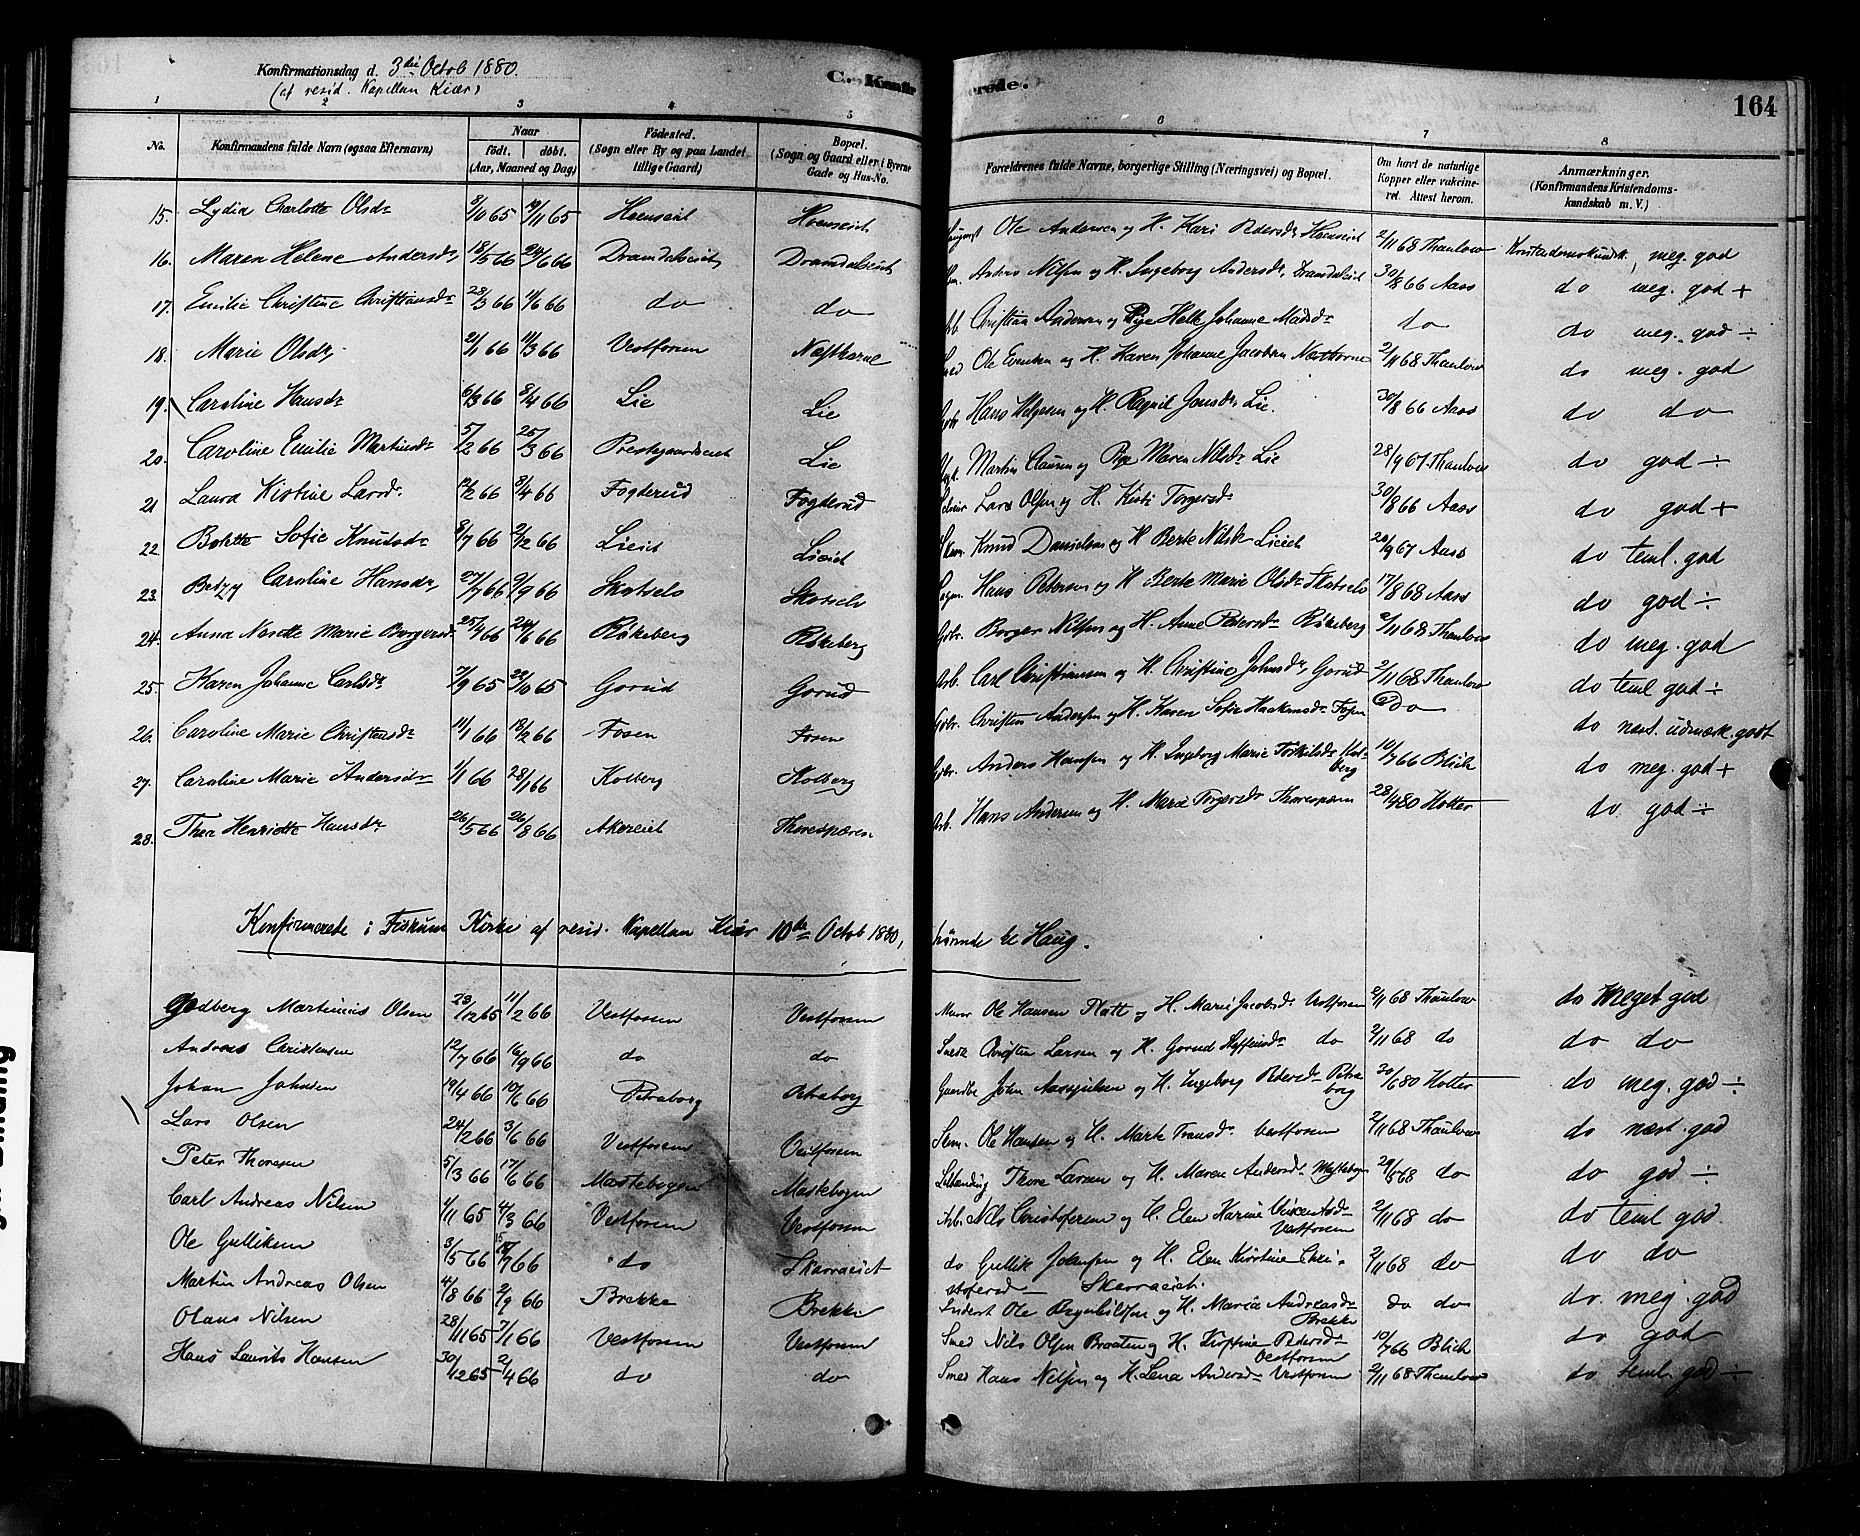 Konfirmationsdag d. 3die Octob 1880.
(af resid. Kapellan Kiær)
C. Konfir
erede.
164
1 2 3 4 5 6 7 8
No. Konfirmandens fulde Navn (ogsaa Efternavn) Naar födt. döbt. (Aar, Maaned og Dag) Födested. (Sogn eller By og paa Landet tillige Gaard) Bopæl. (Sogn og Gaard eller i Byerne Gade og Hus-No. Forældrenes fulde Navne, borgerlige Stilling (Næringsvei) og Bopæl. Om havt de naturlige Kopper eller vakcineret. Attest herom. Anmærkninger. (Konfirmandens Kristendomskundskab m. V.)
15. Lydia Charlotte Olsdr 9/10 65 65 Hoenseiet Hoenseiet Ole Andersen og H. Kari Pedersdr Hoenseiet 2/11 68 Thaulow Kristendomskundsk. meg. god
16. Maren Helene Andersdr 18/5 66 24/6 66 Dramdalseiet Dramdalseiet Anders Nilsen og H. Ingeborg Andersdr Dramdalseiet 30/8 66 Aass do meg. god +
17. Emilie Christine Christiansdr 28/3 66 66 do do Christian Andersen og Pige Helle Johanne Madsdr do do meg. god ÷
18. Marie Olsdr 2/1 66 11/3 66 Vestfosen Næstkorne Smed Ole Evensen og H. Karen Johanne Jacobsen Næstkorne 2/11 68 Thaulow do meg. god
19. Caroline Hansdr 6/3 66 8/4 66 Lie Lie Gbr Hans Helgesen og H. Ragnil Jonsdr Lie. 30/8 66 Aass do do
20. Caroline Emilie Martinsdr 5/2 66 25/3 66 Prestegaardseiet Lie Martin Clausen og Pige Maren Nilsdr Lie 28/9 67 Thaulow do god ÷
21 Laura Kistine Larsdr 12/2 66 3/4 66 Fogderud Fogderud Lars Olsen og H. Kisti Torgersdr 30/8 66 Aass do god +
22 Bolette Sofie Knutsdr 8/7 66 2/12 66 Lieeiet Lieeiet Knud Danielsen og H Berte Nilsdr Lieeiet 28/9 67 Aass do teml. god
23. Betzy Caroline Hansdr 27/7 66 9/9 66 Skotselv Skotselv Hans Petersen og H Berte Marie Olsdr Skotselv 17/8 68 Aass do god ÷
24. Anna Nosette Marie Borgersdr 25/4 66 24/6 66 Rökeberg Rökeberg Gbr. Borger Nilsen og H. Anne Pedersdr Rökeberg 2/11 68 Thaulow do meg. god
25. Karen Johanne Carlsdr 7/9 65 22/10 65 Gorud Gorud Arb. Carl Christiansen og H. Christine Johnsdr, Gorud 2/11 68 Thaulow do teml god ÷
26. Caroline Marie Christensdr 11/1 66 18/2 66 Fosen Fosen Gbr. Christen Andersen og H. Karen Sofie Haakensdr Fosen do do næst. udmærk. godt
27. Caroline Marie Andersdr 1/1 66 28/1 66 Kolberg Kolberg Gbr. Anders Hansen og H. Ingeborg Marie Torkilsdr Kolberg 10/7 66 Blich do meg. god +
28. Thea Henriette Hansdr 26/5 66 26/8 66 Akereiet Thorespæren Arb. Hans Andersen og H. Marie Torgersdr Thorespæren 28/4 80 Hotter do god ÷
Konfirmerede i Fiskum Kirke af resid. Kapellan Kiær 10de Octob 1880, hørende til Haug.
Godberg Martinius Olsen 23/12 65 11/2 66 Vestfosen Vestfosen Murer Ole Hansen Flatt og H. Marie Jacobsdr Vestfosen 2/11 68 Thaulow do Meget god
Andreas Christensen 12/7 66 16/9 66 do do Christen Larsen og H. Gorud do 2/11 68 do do do
Johan Johnsen 19/4 66 10/6 66 Petraborg Petraborg Gaardbr John og H. Ingeborg Pedersdr Petraborg 80 Hotter do meg. god ÷
Lars Olsen 24/2 66 3/6 66 Vestfosen Vestfosen Ole Hansen og H. Marte Fransdr Vestfosen 2/11 68 Thaulow do næst. god
Peter Thoresen 5/3 66 17/6 66 Mastebogen Mastebogen Thore Larsen og H. Maren Andersdr Mastebogen 29/5 68 do do god ÷
Carl Andreas Nilsen 1/11 65 4/3 66 Vestfosen Vestfosen Arb. Nils Christofersen og H. Elen Karine Vincentsdr Vestfosen 2/11 68 do do teml god.
Ole Gulliksen 3/5 66 15/7 66 do Skarraeiet do Gullik Johansen og H. Elen Kirstine Christofersdr Skarraeiet. 2/11 68 do do do
Martin Andreas Olsen 4/8 66 2/9 66 Brekke Brekke Inderst Ole Brynhildsen og H. Maria Andreasdr Brekke do do do. meg. god
Olaus Nilsen 28/11 65 7/1 66 Vestfosen Vestfosen Smed Nils Olsen Braaten og H. Kirstine Pedersdr Vestfosen 10/7 66 Blich do god
Hans Laurits Hansen 30/12 65 2/4 66 do do Smed Hans Nilsen og H. Lena Andersdr Vestfosen 2/11 68 Thaulow do teml. god ÷